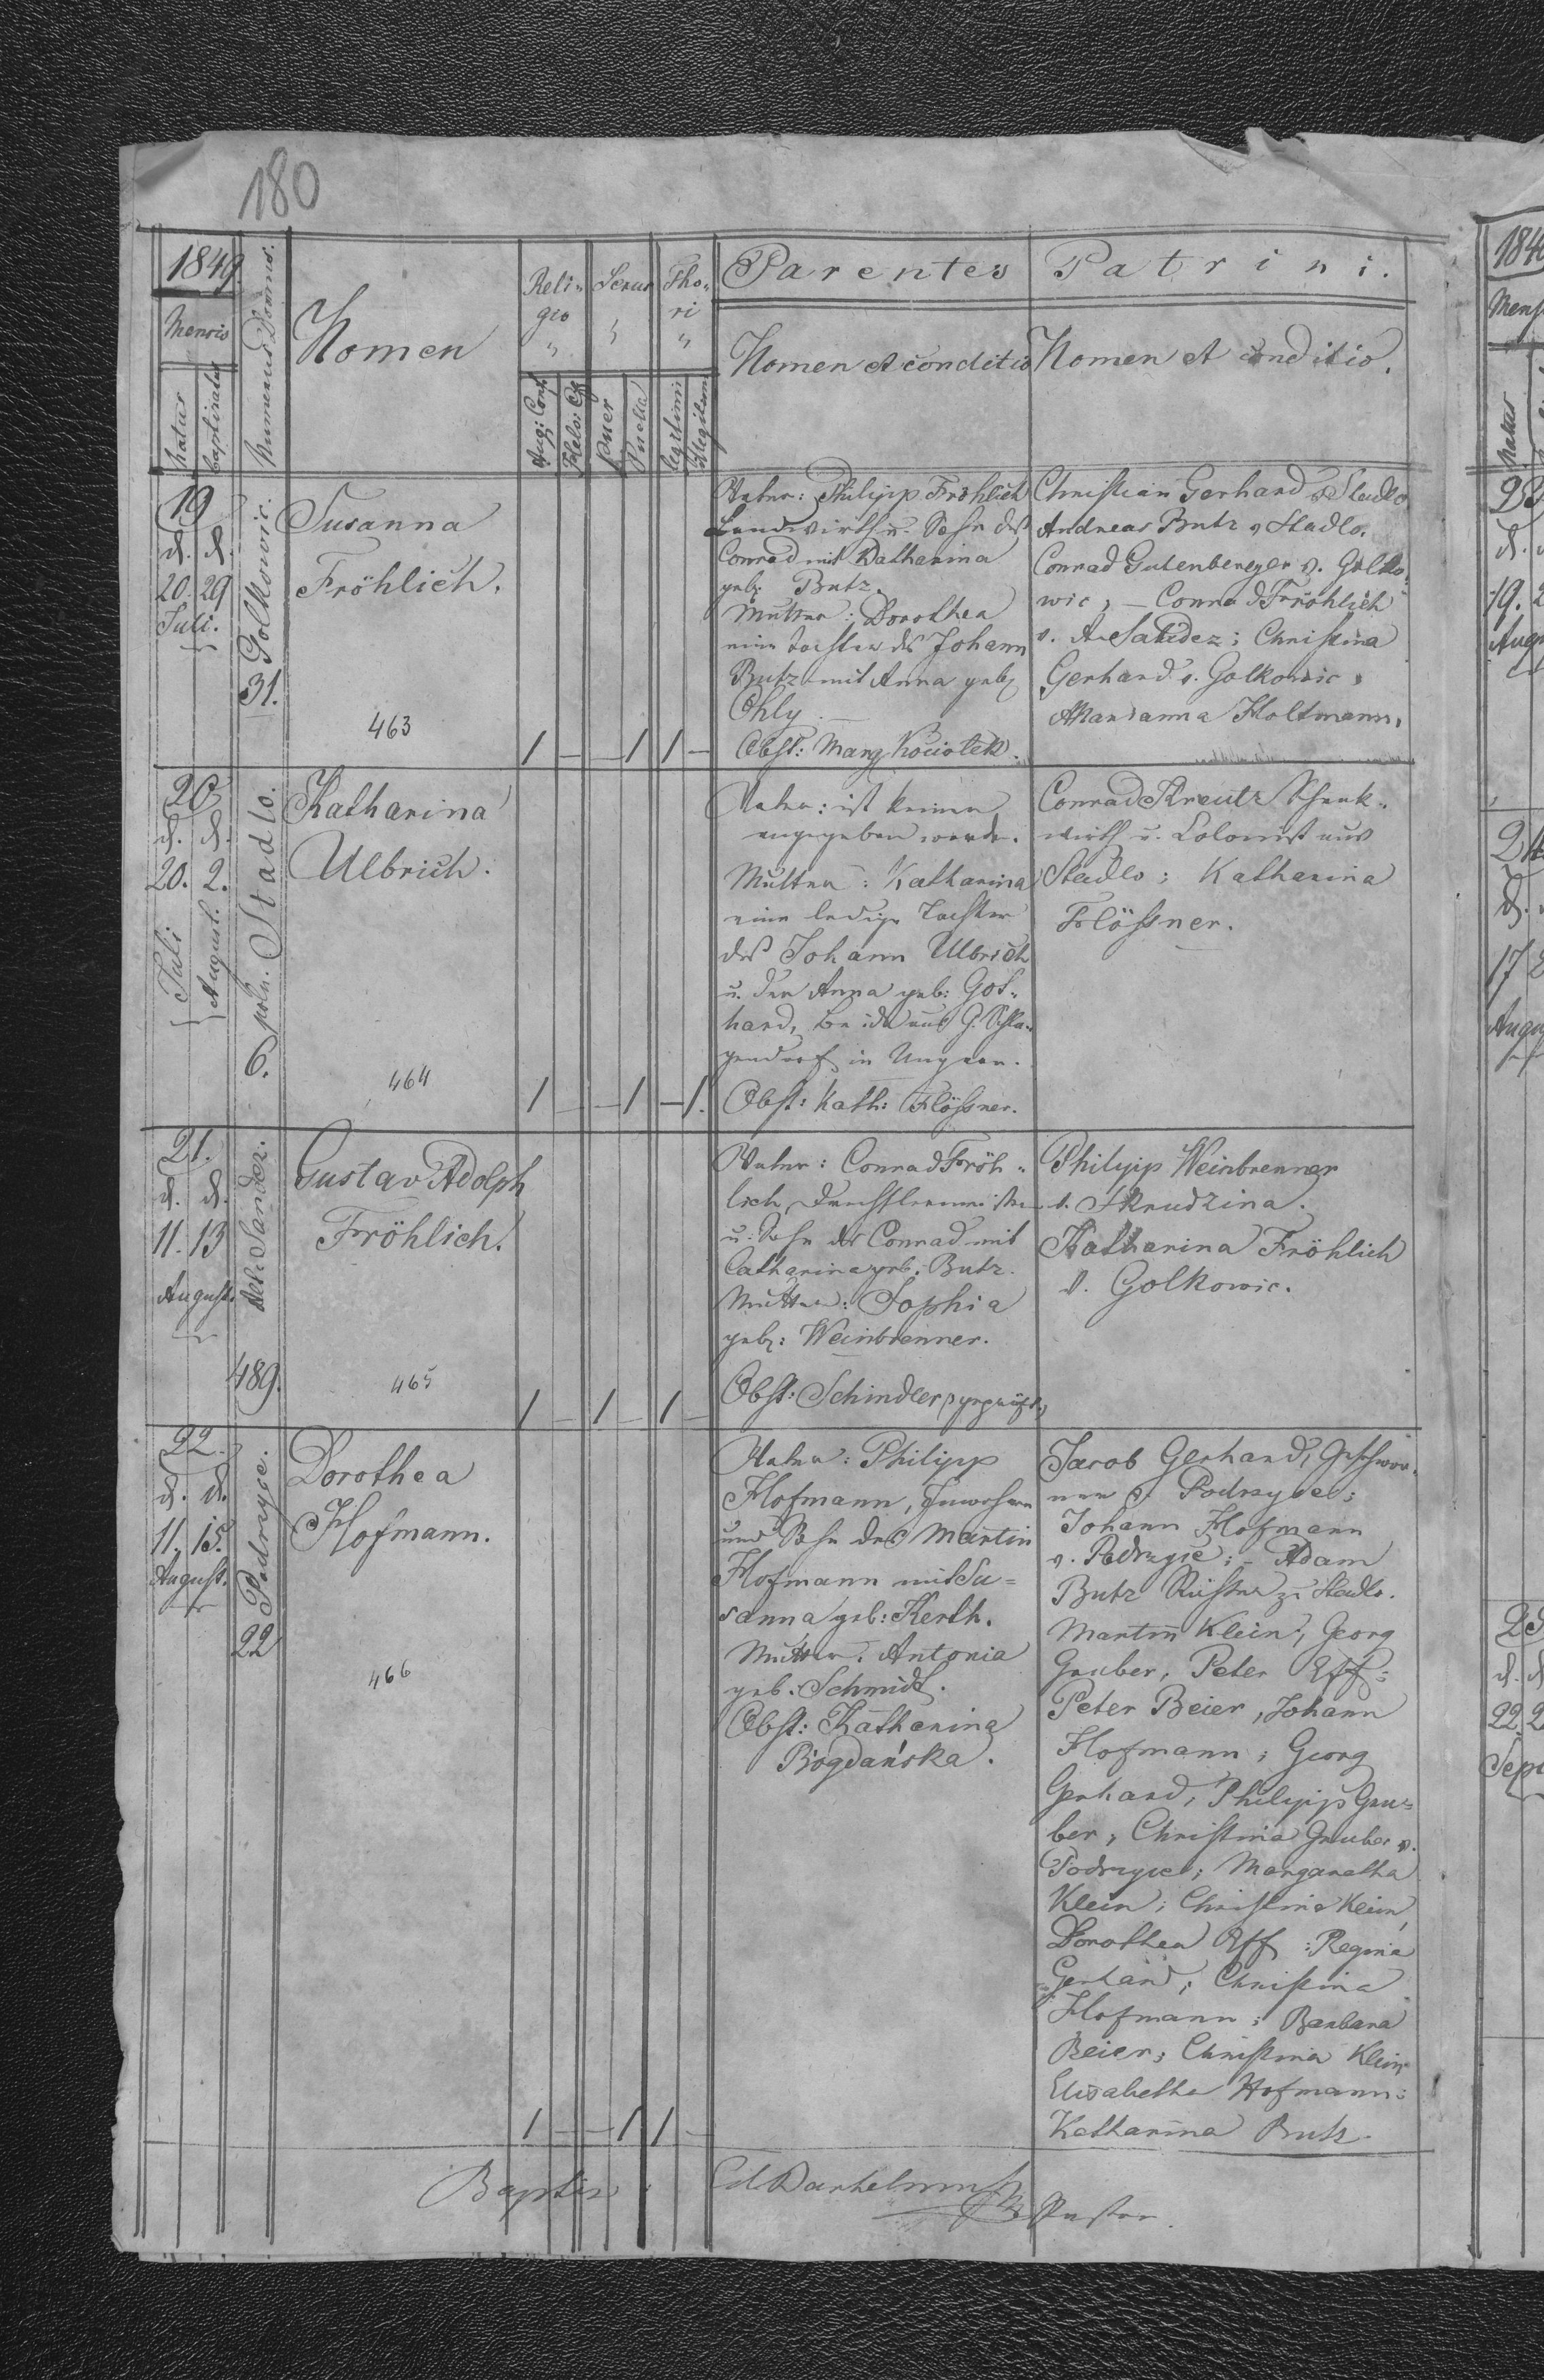 180
1849.
Mensis
natus
baptisatus
Numerus Domus.
Nomen
Reli-
gio
"
Aug: Conf.
Helv: Cff
Sexus
"
Puer
Puella
Tho-
ri
"
legitimi
illegitimi
Parentes
Nomen et conditio
Patrini.
Nomen et conditio.
19
d. d.
20. 29
Juli.
Golkowic.
31.
Susanna
Fröhlich.
463
1 – – 1 1 –
Vater: Philipp Fröhlich
Landwirth u. Sohn des
Conrad mit Katharina
geb: Butz.
Mutter: Dorothea
eine Tochter des Johann
Butz mit Anna geb:
Ohly.
Obst: Marg Kociolek.
Christian Gerhard v. Stadlo
Andreas Butz v Stadlo.
Conrad Gutenberger v. Golko-
wic, – Conrad Fröhlich
v. A Sandez; Christina
Gerhard v. Golkowic,
Marianna Holtmann.
20
d. d.
20. 2.
Juli
August.
poln. Stadlo.
6.
Katharina
Ulbrich.
464
1 – – 1 – 1.
Vater: ist keiner
angegeben worden.
Mutter: Katharina
eine ledige Tochter
des Johann Ulbrich
u. der Anna geb: Got-
hard, beide aus G. Schla-
gendorf in Ungarn.
Obst: Kath: Flößner.
Conrad Kreutz Schenk-
wirth u. Colonist aus
Stadlo; Katharina
Flößner.
21.
d. d.
11. 13
August.
Alt Sandez.
489.
Gustav Adolph
Fröhlich.
465
1 – 1 – 1 –
Vater: Conrad Fröh-
lich
u. Sohn des Conrad mit
Catharina geb. Butz.
Mutter: Sophia
geb: Weinbrenner.
Obst: Schindler, geprüft.
Philipp Weinbrenner
v. Skrudzina.
Katharina Fröhlich
v. Golkowic.
22.
d. d.
11. 15.
August.
Podrzyce.
22
Dorothea
Hofmann.
466
1 – – 1 1 –
Vater: Philipp
Hofmann, Inwohner
und Sohn des Martin
Hofmann mit Su=
sanna geb: Kerth.
Mutter: Antonia
geb. Schmidt.
Obst: Katharina
Bogdańska.
Jacob Gerhard, Geschwor-
ner v. Podrzyce;
Johann Hofmann
v. Podrzyce; – Adam
Butz Küster zu Stadlo.
Martin Klein, Georg
Gruber, Peter Eff;
Peter Beier, Johann
Hofmann; Georg
Gerhard, Philipp Gru=
ber, Christina Gruber v.
Podrzyce; Margaretha
Klein; Christina Klein,
Dorothea Eff; Regina
Gerhard; Christina
Hofmann; Barbara
Beier; Christina Klein
Elisabetha Hofmann;
Katharina Butz.
Baptis: Ed Bartelmuss
Pastor.